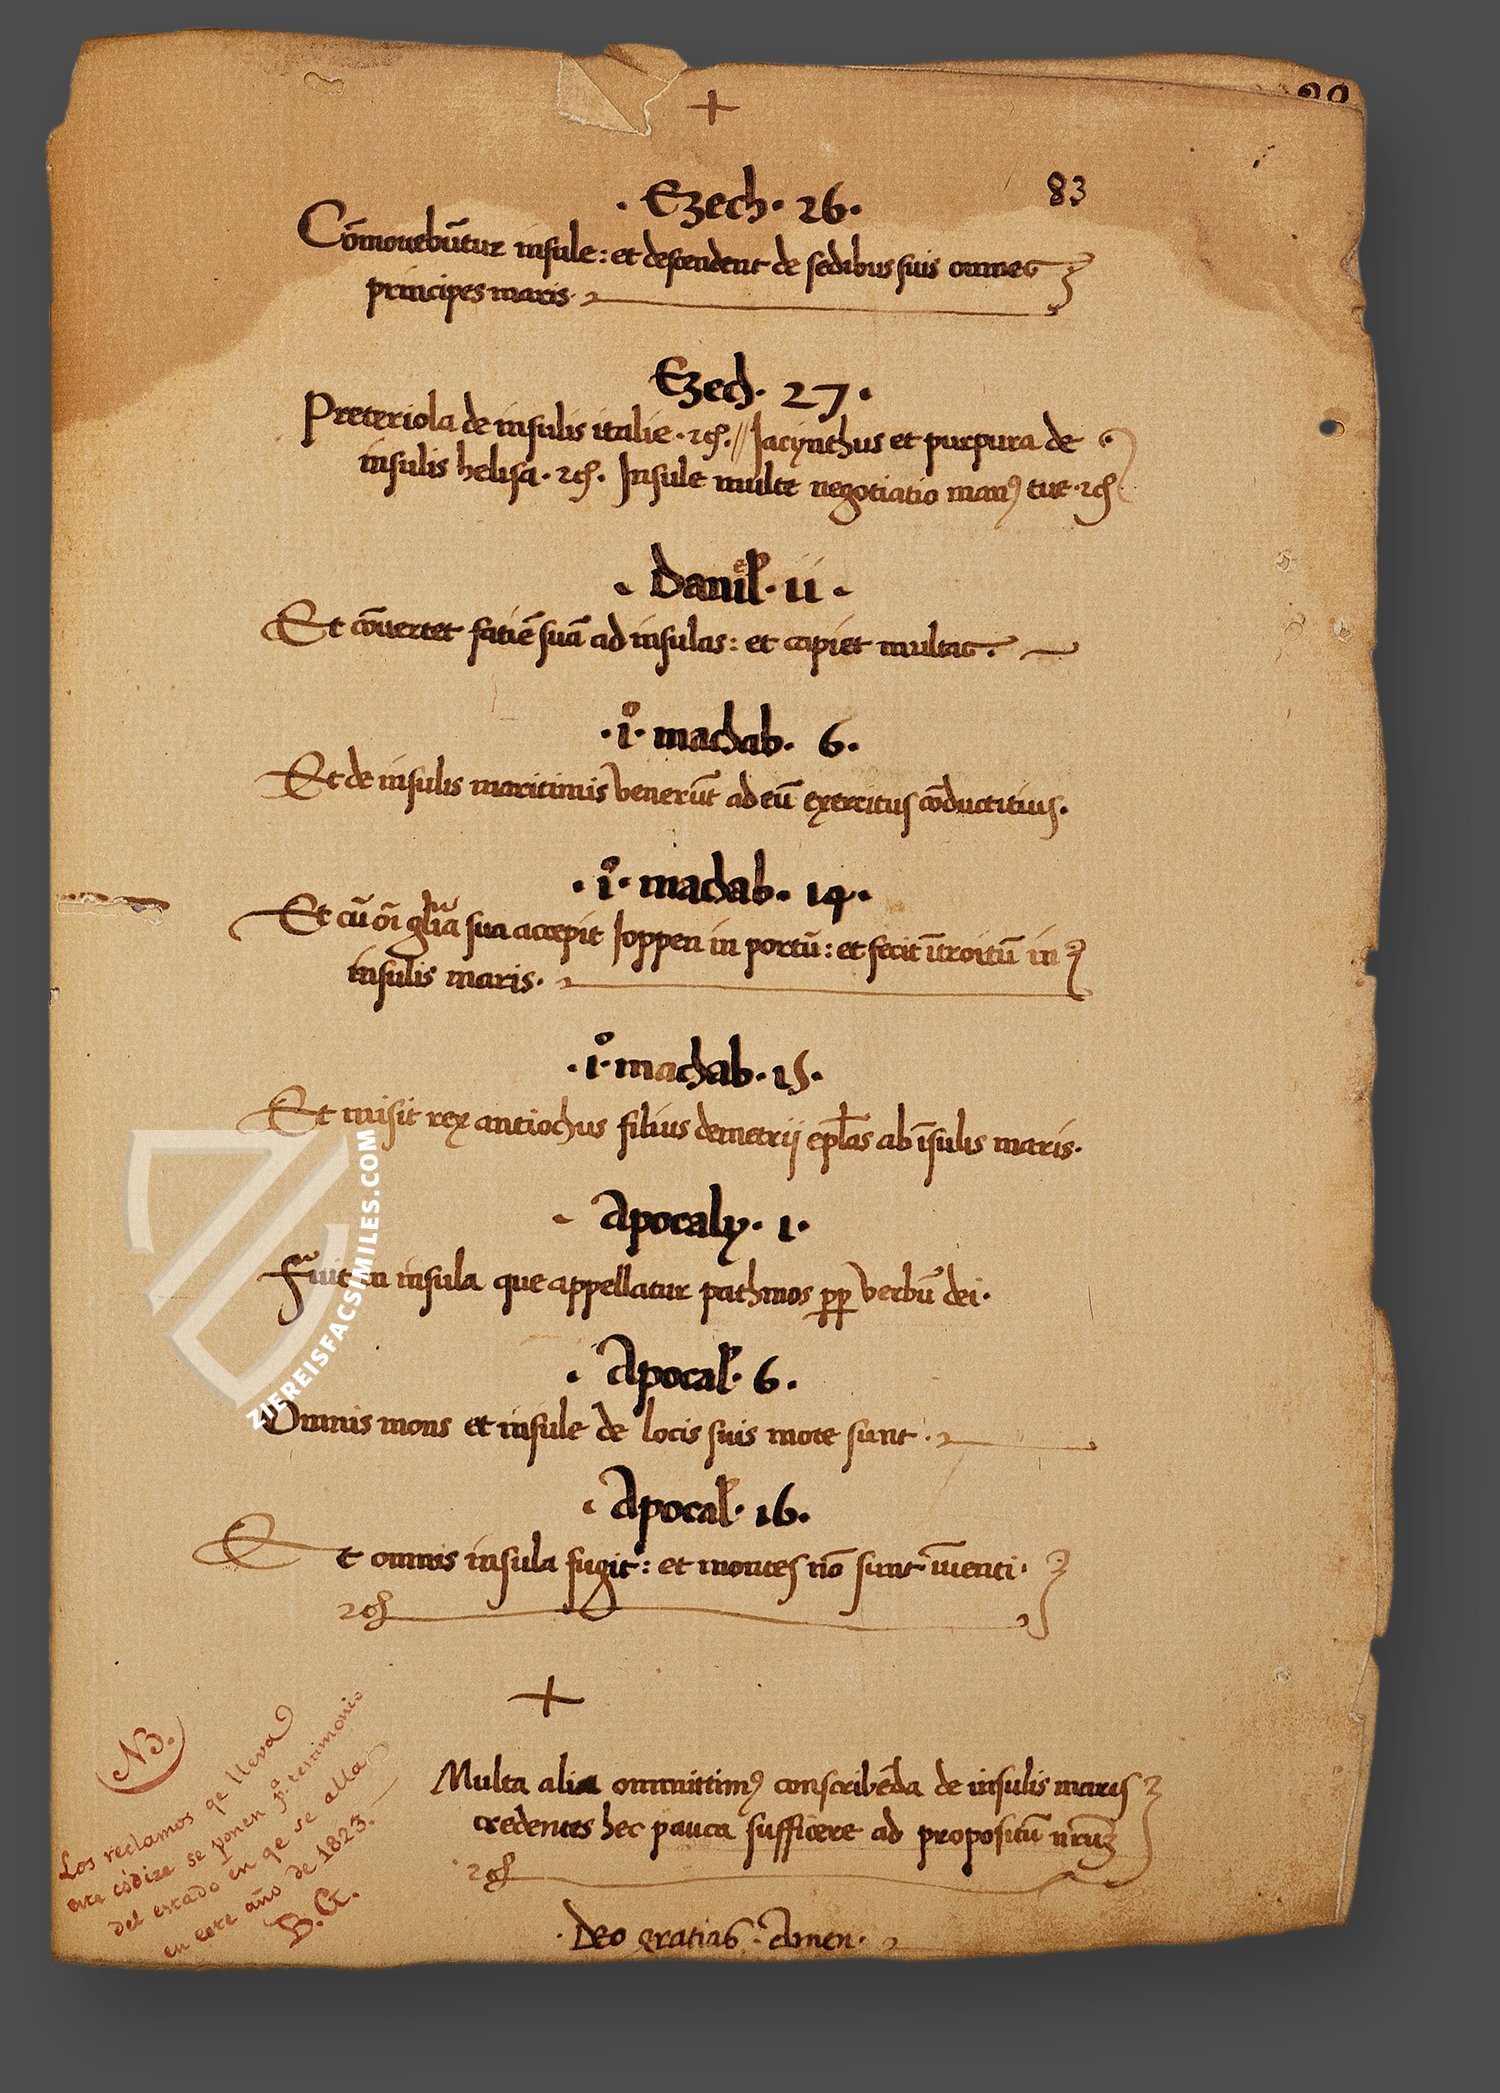 +
83
· Ezech · 26 ·
Cōmouebūtur insule : et descendent de sedibus suis omnes
principes maris ·
Ezech · 27 ·
Preteriola de insulis italie · ⁊cͥ. // Jacynthus et purpura de
insulis helisa · ⁊cͥ. Insule multe negotiatio manꝰ tue · ⁊cͥ
· Danieł · 11 ·
Et cōuertet fatiē suā ad insulas : et capiet multas ·
· 1º · machab · 6 ·
Et de insulis maritimis venerūt ad eū exercitus cōductitius.
· 1º · machab · 14 ·
Et cū oī gl̄ia sua accepit Joppen in portū : et fecit ītroitū in
insulis maris ·
· 1º · machab · 15 ·
Et misit rex antiochus filius demetrij ep̄las ab īsulis maris ·
· Apocaly · 1 ·
Fui in insula que appellatur pathmos ꝓꝑ verbū dei ·
· Apocal̄ · 6 ·
Omnis mons et insule de locis suis mote sunt ·
· Apocal̄ · 16 ·
Et omnis insula fugit : et montes nō sunt īuenti ·
⁊cͥ
+
Multa alia ommittimꝰ conscribēda de insulis maris
credentes hec pauca sufficere ad propositū nr̄um
⁊cͥ
· Deo gratias · Amen ·
NB.
Los reclamos qe lleva
este códize se ponen pª. testimonio
del estado en qe se alla
en este año de 1823.
B. G.
ZIEREISFACSIMILES.COM